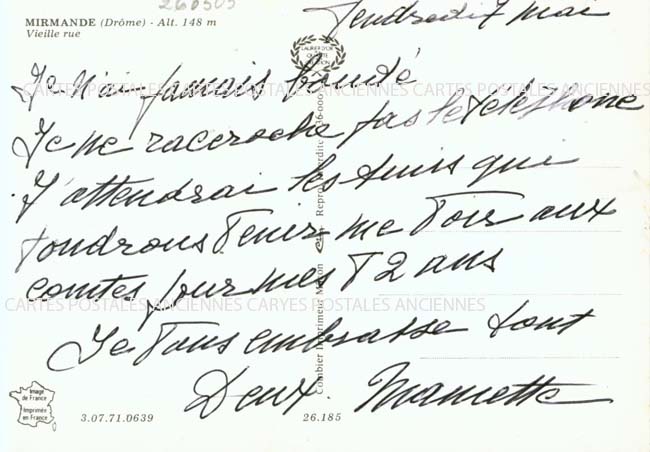 260505
MIRMANDE (Drôme) - Alt. 148 m
Vieille rue
Vendredi 7 mai
LAURIER D'OR
QUALITÉ
Je n'ai jamais boudé
CARTES POSTALES ANCIENNES CARTES POSTALES ANCIENNES
Je ne raccroche pas le Téléphone
J'attendrai les suis qui
voudrons venir me voir aux
comtes pour mes 72 ans
CARTES POSTALES ANCIENNES CARYES POSTALES ANCIENNES
Je vous embrasse tout
Deux. Mamette
Combier Imprimeur Mâcon
Repro. Interdite
Image
de France
Imprimée
en France
3.07.71.0639
26.185